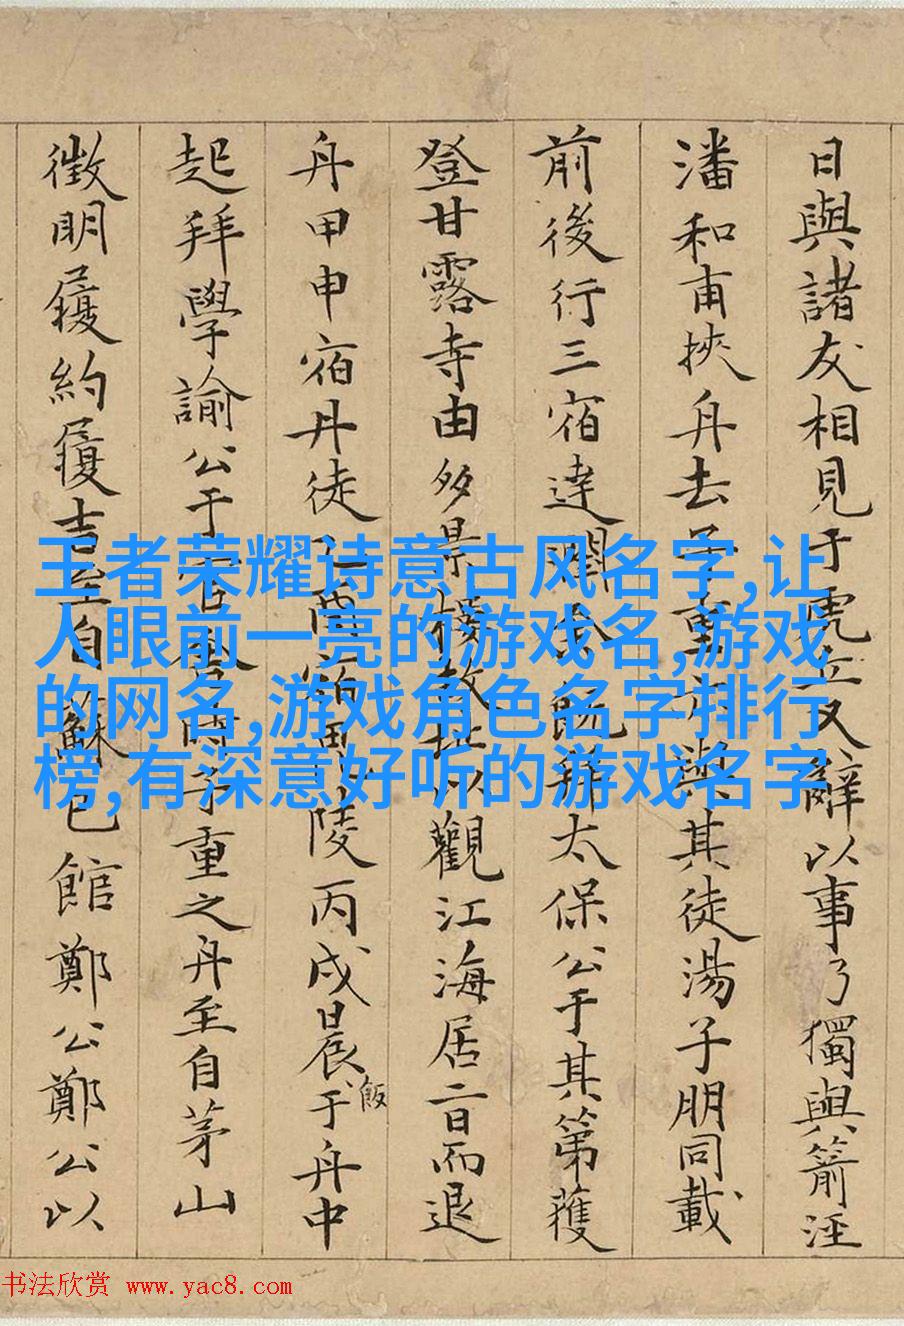 日與諸友相見于虎丘又辭以事乃獨與箭涇
潘和甫挾舟去子重亦與其徒湯子朋同載
前後行三宿達潤既拜太保公于其第獲
登甘露寺由多景樓故址以觀江海居二日而退
舟甲申宿丹徒乙酉陵丙戌晨飯于舟中
起拜學諭公于官子重之舟至自茅山
徵明履約履吉至自蘇已館鄭公鄭公以
王者荣耀诗意古风名字,让
人眼前一亮的游戏名,游戏
的网名,游戏角色名字排行
榜,有深意好听的游戏名字
书法欣赏 www.yac8.com